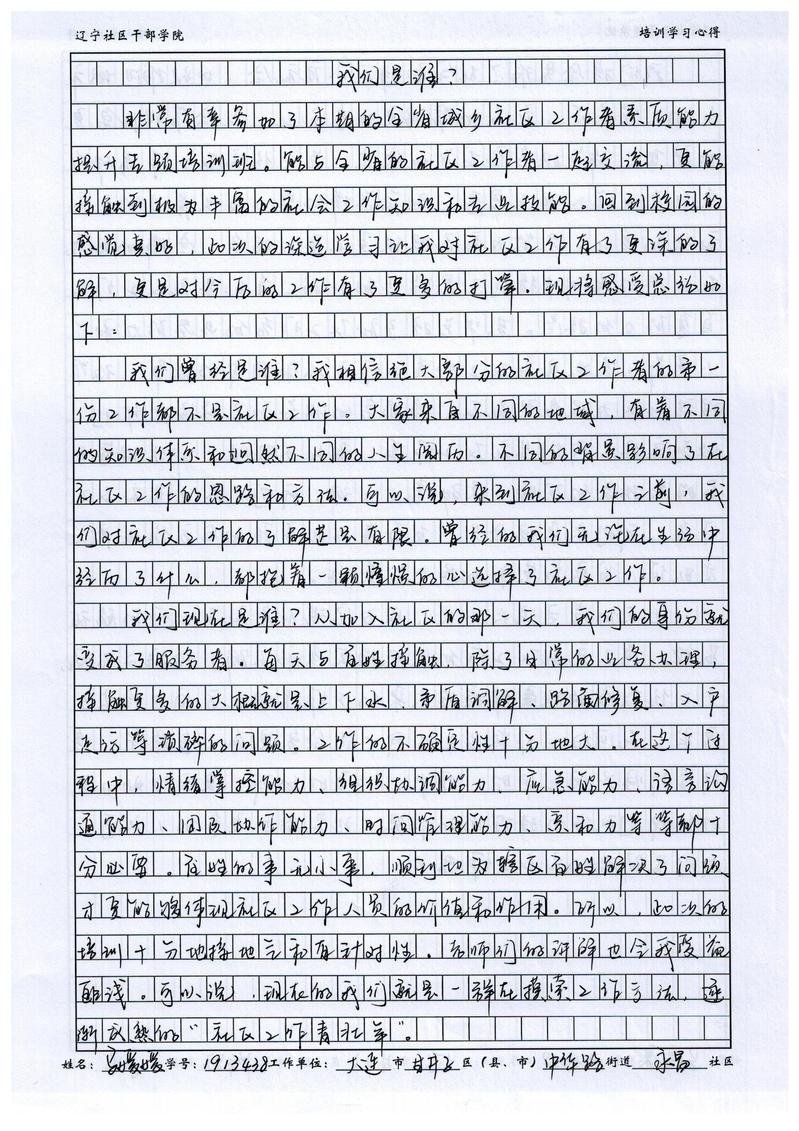 辽宁社区干部学院 培训学习心得
我们是谁?
非常有幸参加了本期的全省城乡社区工作者素质能力
提升专题培训班。能与全省的社区工作者一起交流,更能
接触到极为丰富的社会工作知识和专业技能。回到校园的
感觉真好,此次的深造学习让我对社区工作有了更深的了
解,更是对今后的工作有了更多的打算。现将感受总结如
下:
我们曾经是谁?我相信绝大部分的社区工作者的第一
份工作都不是社区工作。大家来自不同的地域,有着不同
的知识体系和迥然不同的人生阅历。不同的背景影响了在
社区工作的思路和方法。可以说,来到社区工作之前,我
们对社区工作的了解甚是有限,曾经的我们无论在生活中
经历了什么,都抱着一颗憧憬的心选择了社区工作。
我们现在是谁?从加入社区的那一天,我们的身份就
变成了服务者。每天与百姓接触,除了日常的业务办理,
接触更多的大概就是上下水、矛盾调解、路面修复、入户
走访等琐碎的问题。工作的不确定性十分地大。在这个过
程中,情绪掌控能力、组织协调能力、应急能力、语言沟
通能力、团队协作能力、时间管理能力、亲和力等等都十
分必要。百姓的事无小事,顺利地为辖区百姓解决了问题
才更能够体现社区工作人员的价值和作用。所以,此次的
培训十分地接地气和有针对性。老师们的讲解也令我受益
匪浅。可以说,现在的我们就是一群在摸索工作方法,逐
渐成熟的“社区工作青壮年”。
姓名: 媛媛 学号: 1913438 工作单位: 大连 市 甘井子 区(县、市) 中华路 街道 永昌 社区